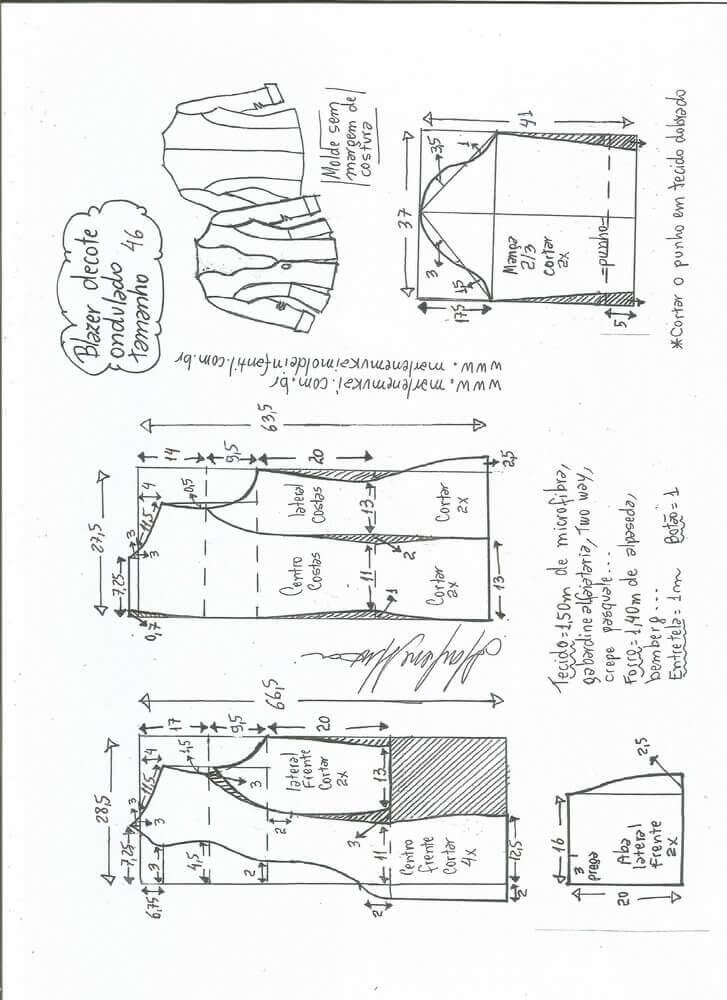 Blazer decote
ondulado
tamanho 46
Molde sem
margem de
costura
www.marlenemukai.com.br
www.marlenemukaimoldeinfantil.com.br
41
37
17,5
3,5
1
3
15
Manga
2/3
cortar
2x
=punho=
5
*Cortar o punho em tecido dobrado
63,5
27,5
14
9,5
20
4
11,5
3
3
7,25
0,7
0,5
lateral
Costas
Cortar
2x
13
2,5
Centro
Costas
Cortar
2x
11
2
1
13
66,5
28,5
17
9,5
20
4
11,5
3
3
7,25
6,75
3
4,5
1,5
3
2
2
lateral
Frente
Cortar
2x
13
3
11
2
Centro
frente
Cortar
4x
12,5
2
Tecido=1,50m de microfibra,
gabardine alfaiataria, Two way,
crepe pasquale...
Forro=1,40m de alpaseda,
bemberg...
Entretela=1m Botão=1
16
3
prega
Aba
lateral
frente
2x
20
2,5